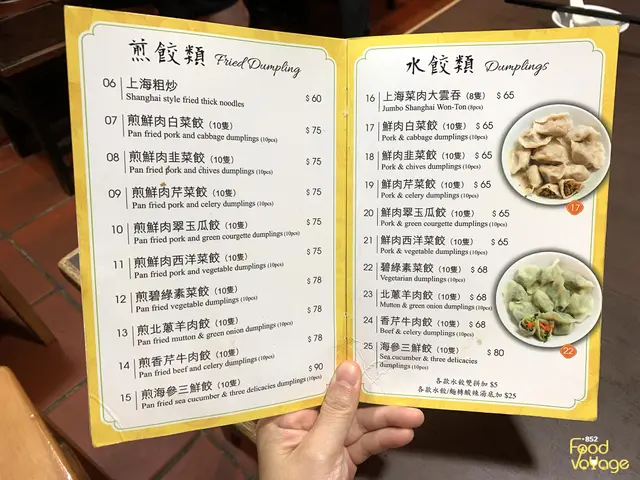 煎餃類 Fried Dumpling
06 上海粗炒
Shanghai style fried thick noodles $ 60
07 煎鮮肉白菜餃 (10隻)
Pan fried pork and cabbage dumplings (10pcs) $ 75
08 煎鮮肉韭菜餃 (10隻)
Pan fried pork and chives dumplings (10pcs) $ 75
09 煎鮮肉芹菜餃 (10隻)
Pan fried pork and celery dumplings (10pcs) $ 75
10 煎鮮肉翠玉瓜餃 (10隻)
Pan fried pork and green courgette dumplings (10pcs) $ 75
11 煎鮮肉西洋菜餃 (10隻)
Pan fried pork and vegetable dumplings (10pcs) $ 75
12 煎碧綠素菜餃 (10隻)
Pan fried vegetable dumplings (10pcs) $ 78
13 煎北蔥羊肉餃 (10隻)
Pan fried mutton & green onion dumplings (10pcs) $ 78
14 煎香芹牛肉餃 (10隻)
Pan fried beef and celery dumplings (10pcs) $ 78
15 煎海參三鮮餃 (10隻)
Pan fried sea cucumber & three delicacies dumplings (10pcs) $ 90
水餃類 Dumplings
16 上海菜肉大雲吞 (8隻) $ 65
Jumbo Shanghai Won-Ton (8pcs)
17 鮮肉白菜餃 (10隻) $ 65
Pork & cabbage dumplings (10pcs)
18 鮮肉韭菜餃 (10隻) $ 65
Pork & chives dumplings (10pcs)
19 鮮肉芹菜餃 (10隻) $ 65
Pork & celery dumplings (10pcs)
20 鮮肉翠玉瓜餃 (10隻) $ 65
Pork & green courgette dumplings (10pcs)
21 鮮肉西洋菜餃 (10隻) $ 65
Pork & vegetable dumplings (10pcs)
22 碧綠素菜餃 (10隻) $ 68
Vegetarian dumplings (10pcs)
23 北蔥羊肉餃 (10隻) $ 68
Mutton & green onion dumplings (10pcs)
24 香芹牛肉餃 (10隻) $ 68
Beef & celery dumplings (10pcs)
25 海參三鮮餃 (10隻) $ 80
Sea cucumber & three delicacies
dumplings (10pcs)
各款水餃雙拼加 $5
各款水餃/麵轉酸辣湯底加 $25
17
22
+852
Food
Voyage